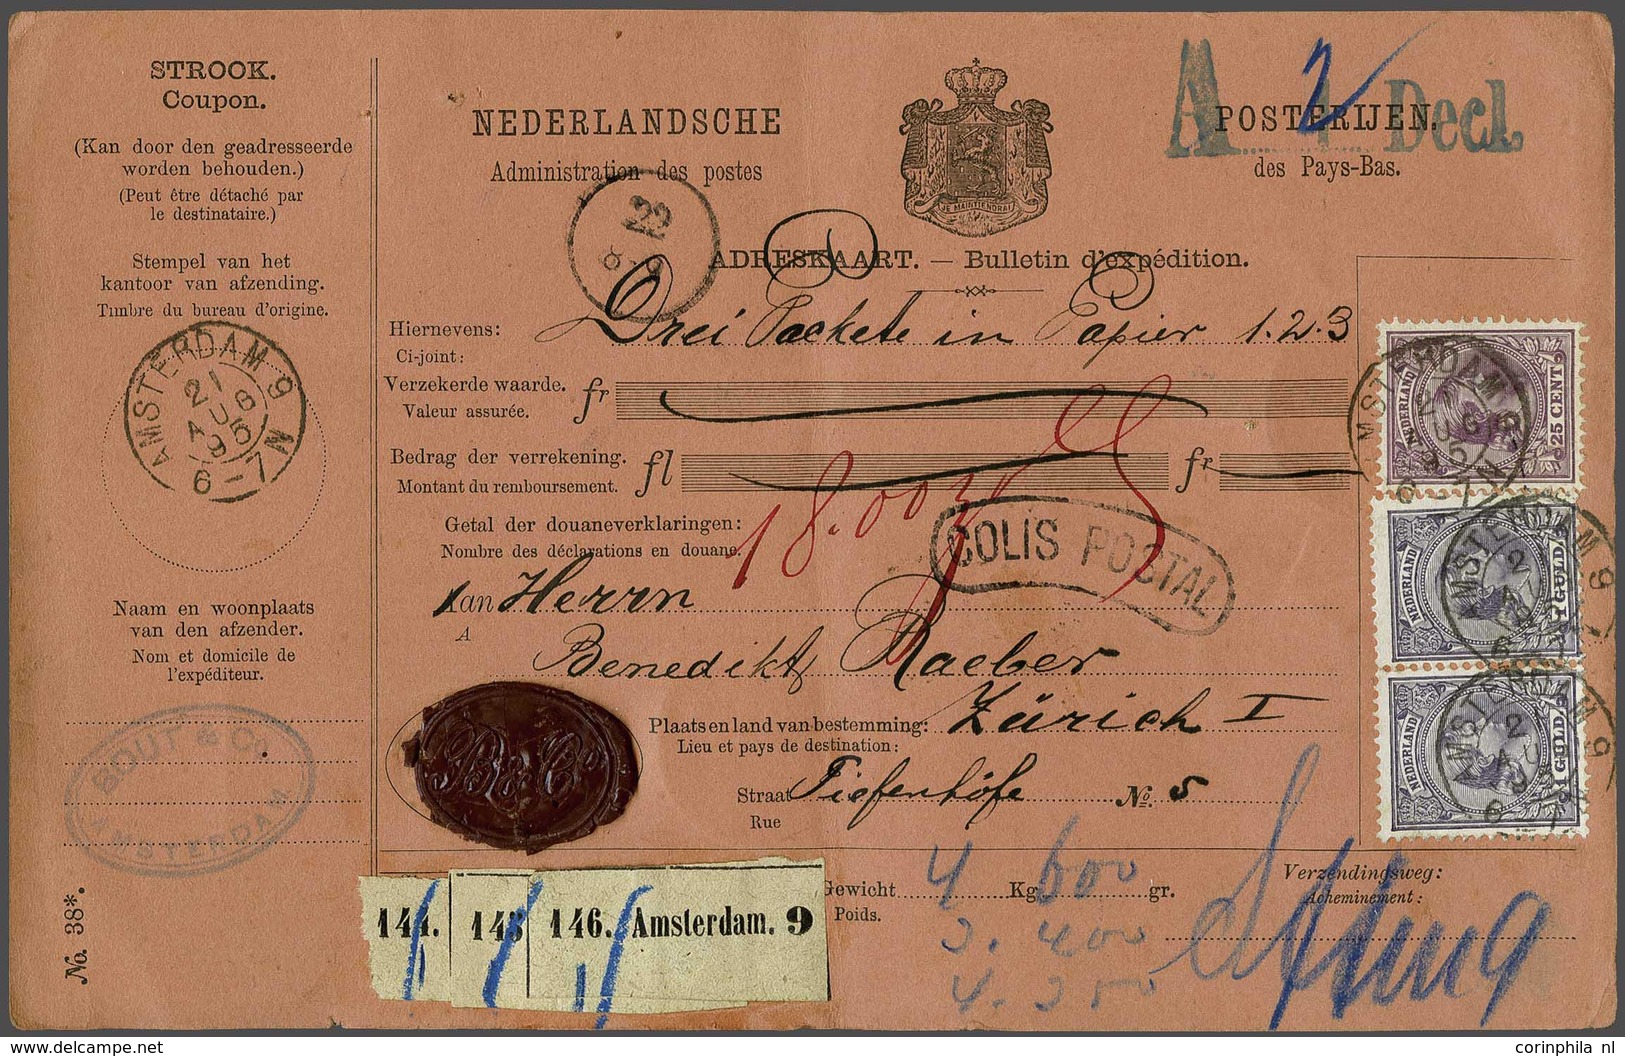 STROOK.
Coupon.
(Kan door den geadresseerde
worden behouden.)
(Peut être détaché par
le destinataire.)
Stempel van het
kantoor van afzending.
Timbre du bureau d'origine.
AMSTERDAM 9
21
AUG
95
6-7 N
Naam en woonplaats
van den afzender.
Nom et domicile de
l'expéditeur.
BOUT & Co.
AMSTERDAM
No. 38*.
NEDERLANDSCHE POSTERIJEN.
Administration des postes des Pays-Bas.
A 1 Decl.
2
JE MAINTIENDRAI
22
ADRESKAART. — Bulletin d'expédition.
Hiernevens: Drei Packete in Papier 1.2.3
Ci-joint:
Verzekerde waarde. fr
Valeur assurée.
Bedrag der verrekening. fl fr
Montant du remboursement.
Getal der douaneverklaringen:
Nombre des déclarations en douane.
COLIS POSTAL
Aan Herrn
A
Benedikt Raeber
Plaats en land van bestemming: Zürich I
Lieu et pays de destination:
Straat Tiefenhöfe No. 5
Rue
B & Co
NEDERLAND
25 CENT
NEDERLAND
1 GULD
NEDERLAND
1 GULD
AMSTERDAM 9
144. 145 146. Amsterdam. 9
Gewicht 4 Kg 600 gr.
Poids.
3. 400
4. 300
Verzendingsweg:
Acheminement:
corinphila nl